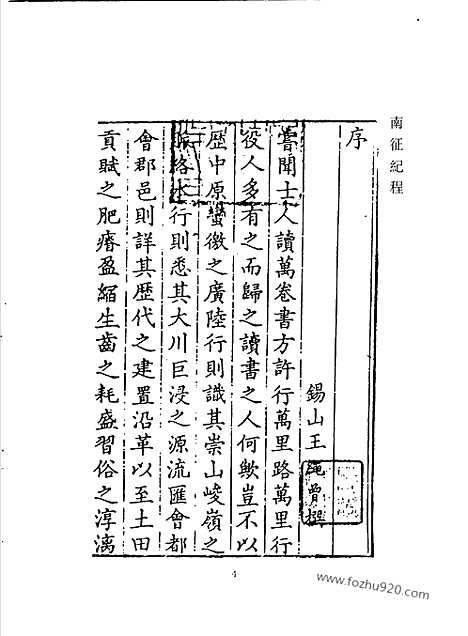 南征紀程
序
錫山王繩曾撰
嘗聞士人讀萬卷書方許行萬里路萬里行
役人多有之而歸之讀書之人何歟豈不以
歴中原蠻徼之廣陸行則識其崇山峻嶺之
脈絡水行則悉其大川巨浸之源流匯會都
會郡邑則詳其歴代之建置沿革以至土田
貢賦之肥瘠盈縮生齒之耗盛習俗之淳漓
4
www.fozhu920.com